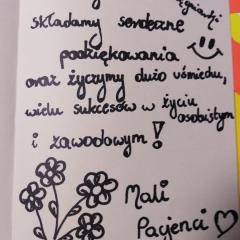 składamy serdeczne
podziękowania
oraz życzymy dużo uśmiechu,
wielu sukcesów w życiu
osobistym
i zawodowym!
Mali
Pacjenci